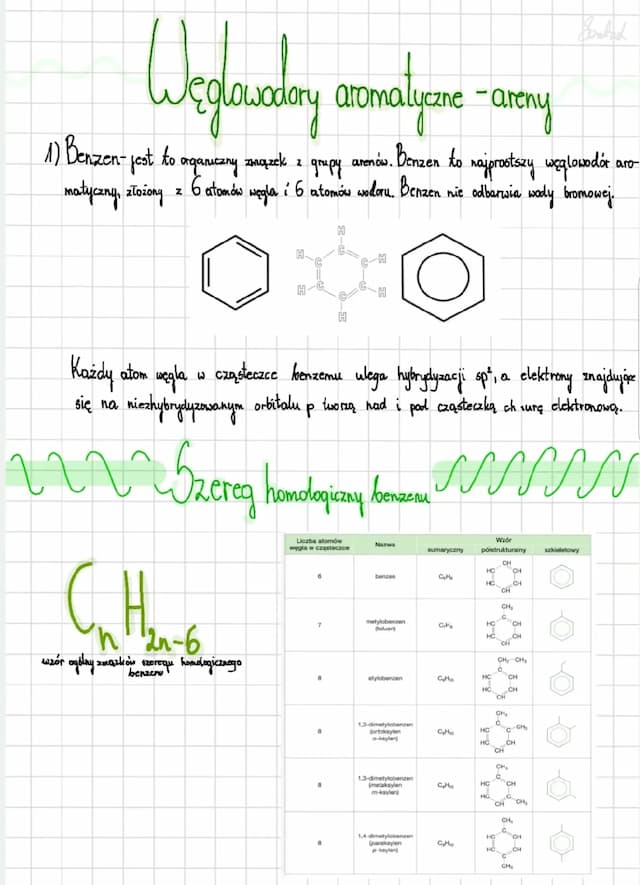 Węglowodory aromatyczne - areny
1) Benzen - jest to organiczny związek z grupy arenów. Benzen to najprostszy węglowodór aro-
matyczny, złożony z 6 atomów węgla i 6 atomów wodoru. Benzen nie odbarwia wody bromowej.
H
H C H
C C
C C
H C H
H
Każdy atom węgla w cząsteczce benzenu ulega hybrydyzacji sp², a elektrony znajdujące
się na niezhybrydyzowanym orbitalu p tworzą nad i pod cząsteczką chmurę elektronową.
Szereg homologiczny benzenu
CnH2n-6
wzór ogólny związków szeregu homologicznego
benzenu
Liczba atomów węgla w cząsteczce Nazwa Wzór
sumaryczny półstrukturalny szkieletowy
6 benzen C₆H₆
CH
HC CH
HC CH
CH
7 metylobenzen (toluen) C₇H₈
CH₃
C
HC CH
HC CH
CH
8 etylobenzen C₈H₁₀
CH₂-CH₃
C
HC CH
HC CH
CH
8 1,2-dimetylobenzen (ortoksylen o-ksylen) C₈H₁₀
CH₃
C
HC C-CH₃
HC CH
CH
8 1,3-dimetylobenzen (metaksylen m-ksylen) C₈H₁₀
CH₃
C
HC CH
HC C
CH CH₃
8 1,4-dimetylobenzen (paraksylen p-ksylen) C₈H₁₀
CH₃
C
HC CH
HC CH
C
CH₃